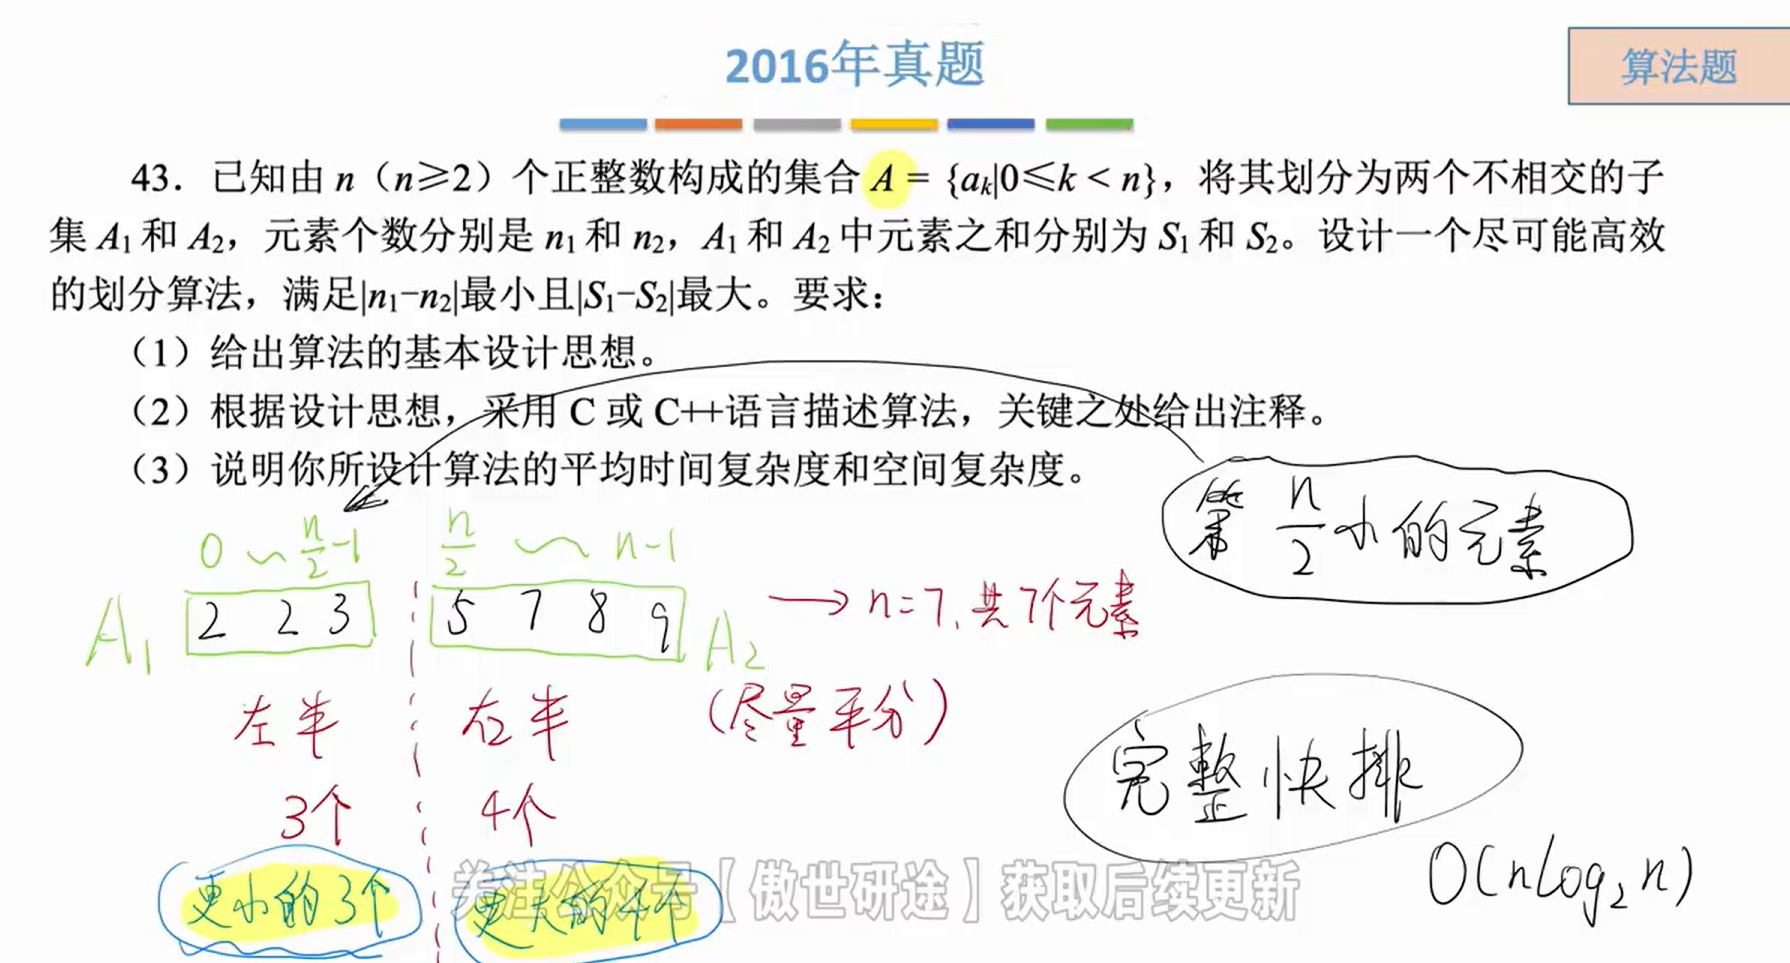 2016年真题
算法题
43. 已知由 n（n≥2）个正整数构成的集合 A = {aₖ|0≤k < n}，将其划分为两个不相交的子
集 A₁ 和 A₂，元素个数分别是 n₁ 和 n₂，A₁ 和 A₂ 中元素之和分别为 S₁ 和 S₂。设计一个尽可能高效
的划分算法，满足|n₁−n₂|最小且|S₁−S₂|最大。要求：
（1）给出算法的基本设计思想。
（2）根据设计思想，采用 C 或 C++语言描述算法，关键之处给出注释。
（3）说明你所设计算法的平均时间复杂度和空间复杂度。
第 n/2 小的元素
0 ~ n/2-1 n/2 ~ n-1
A₁ 2 2 3 5 7 8 9 A₂ → n=7, 共7个元素
左半 右半 (尽量平分)
3个 4个
完整快排
O(nlog₂n)
更小的3个 更大的4个
关注公众号【傲世研途】获取后续更新